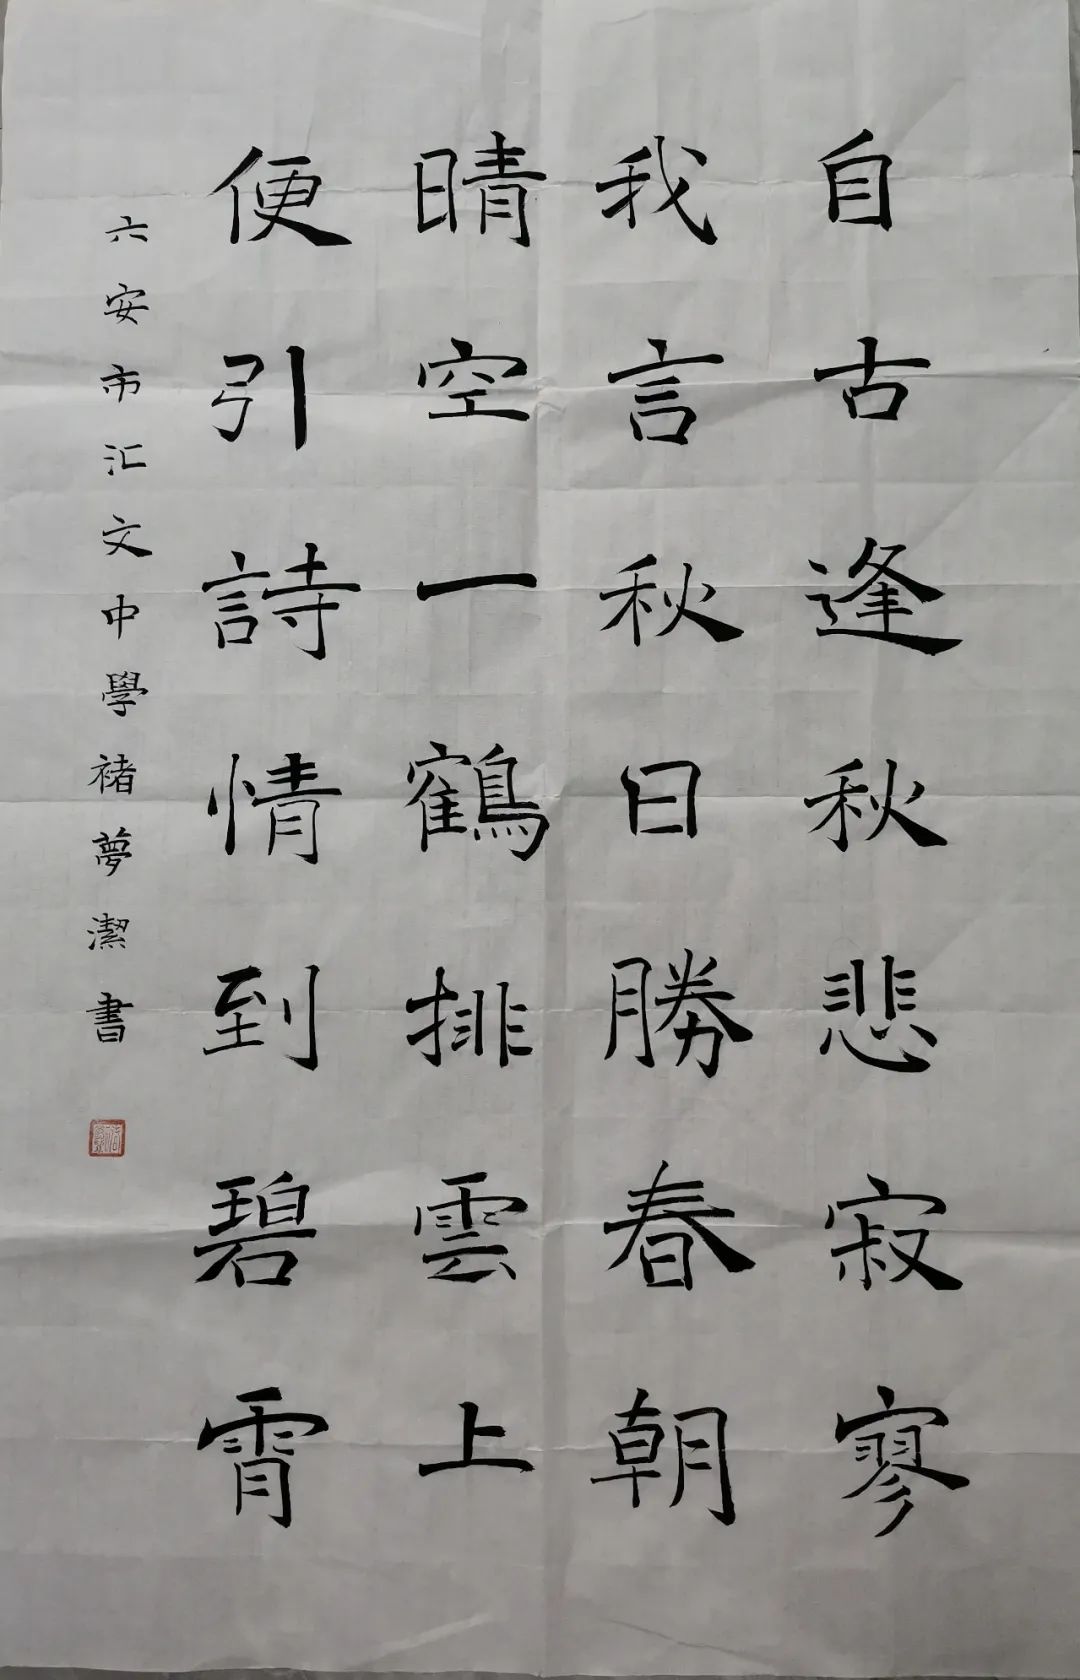 自古逢秋悲寂寥
我言秋日勝春朝
晴空一鶴排雲上
便引詩情到碧霄
六安市汇文中學褚夢潔書